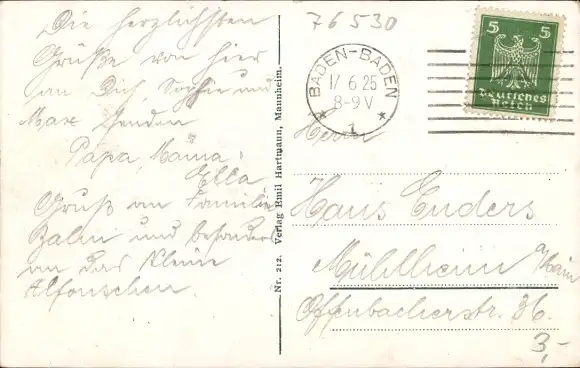 Die herzlichsten
Grüße von hier
an Dich, Sophie und
Max senden
Papa, Mama,
Ella
Gruß an Familie
Zahn und besonders
an das kleine
Alfonschen.
Nr. 212. Verlag Emil Hartmann, Mannheim.
76530
BADEN-BADEN
17.6.25
8-9 V
* 1 *
5 5
Deutsches
Reich
Herrn
Hans Enders
Mühlheim a/Main
Offenbacherstr. 36.
3,-